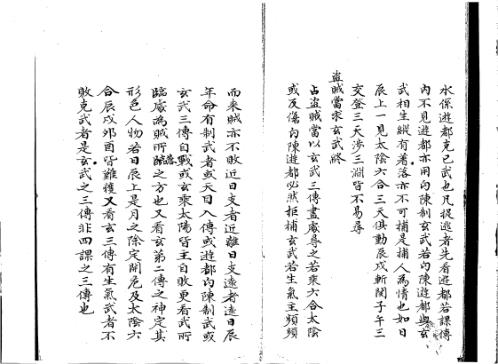 水係遊都克己武也凡捉逃者先看遊都若課傳
內不見遊都亦用勾陳制玄武若勾陳遊都與玄
武相生縱有著落亦不可捕是捕人為情也如日
辰上一見太陰六合三天俱動辰戌斬関子午三
交登三天涉三淵皆不易尋
盜賊當求玄武終
占盜賊當以玄武三傳盡處尋之若乘六合太陰
或及傷勾陳遊都必然拒捕玄武若生氣主頻頻
而來賊亦不敗近日支者近離日支遠者遠日辰
年命有制武者或天目入傳或遊都勾陳制武或
玄武三傳自戰或玄乘太陽皆主自敗更看武所
臨處為賊所臨之方也又看玄第二傳之神定其
形色人物若日辰上是月之除定開危及太陰六
合辰戌卯酉皆難獲又看玄三傳有生氣武者不
敗克武者是玄武之三傳非四課之三傳也